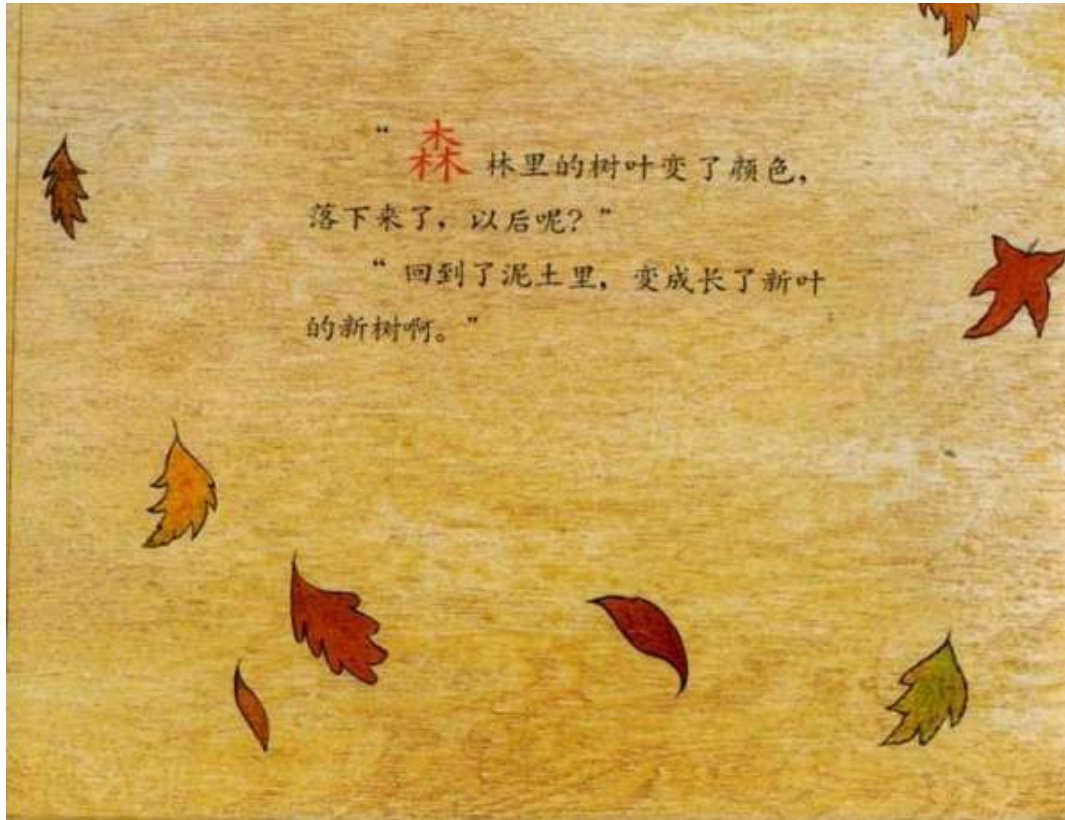 “森林里的树叶变了颜色，
落下来了，以后呢？”
“回到了泥土里，变成长了新叶
的新树啊。”